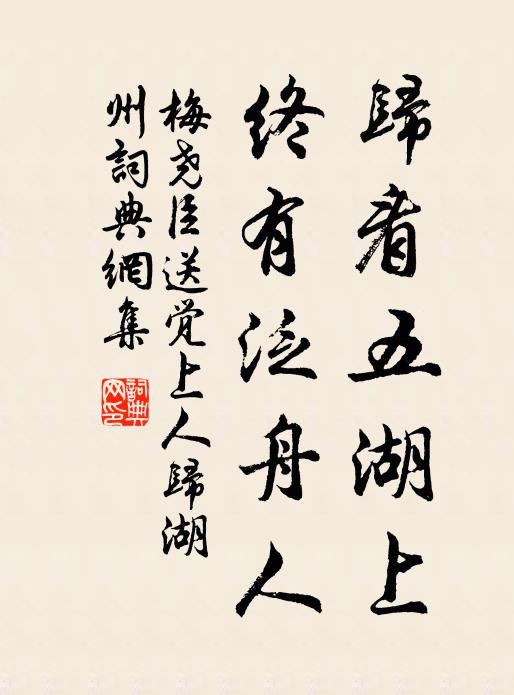 歸看五湖上
終有泛舟人
梅尧臣送觉上人歸湖
州詞典網集
詞典
网印